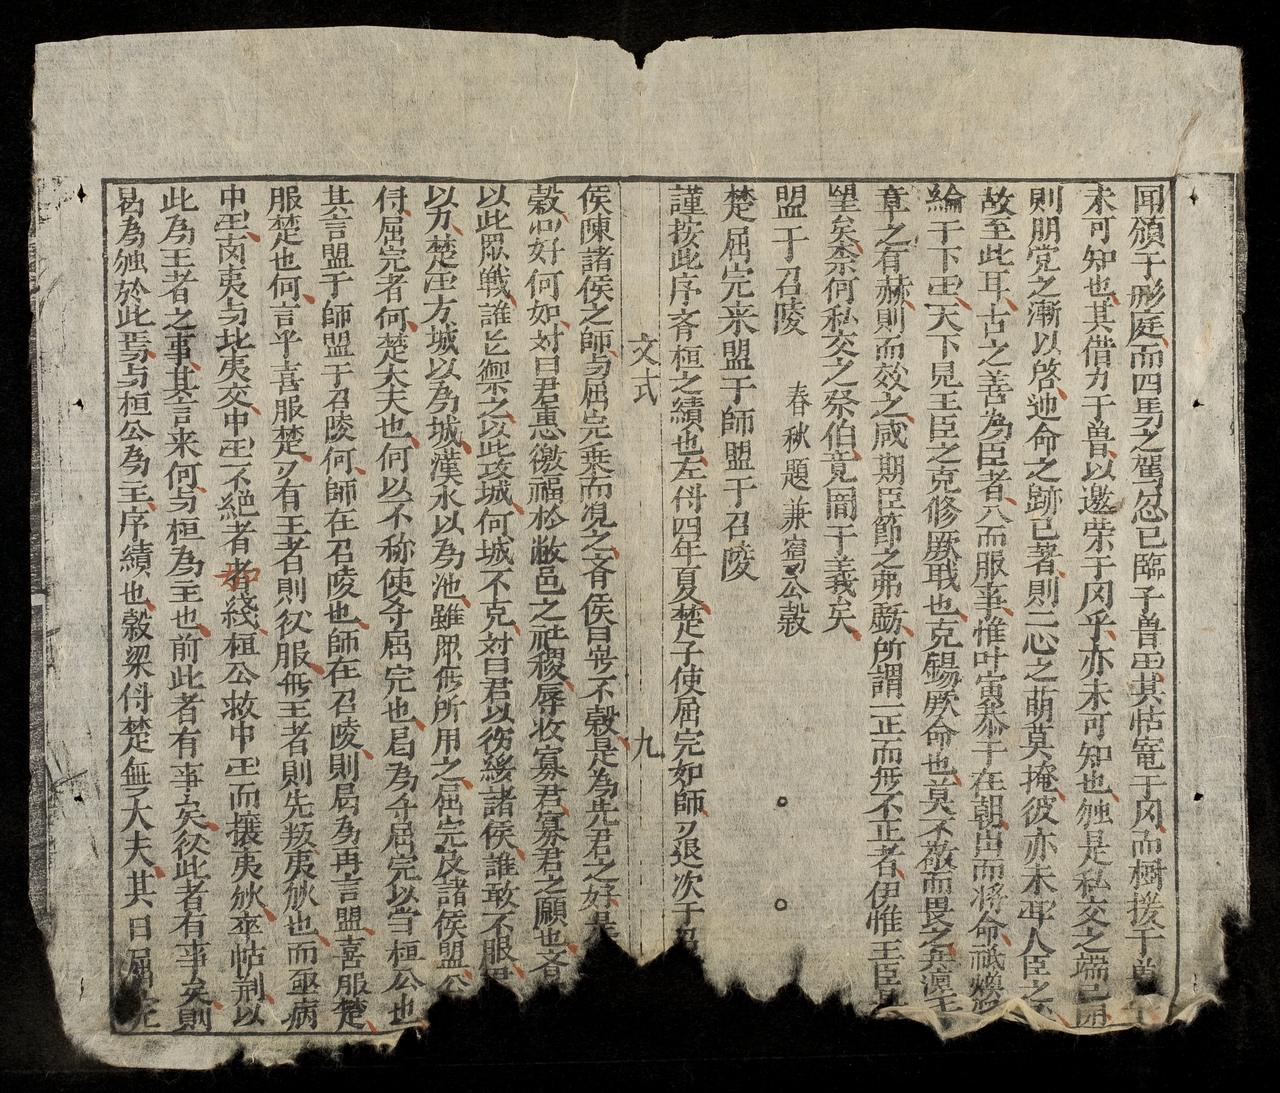 闻頒于彤庭而四馬之駕忽已臨于魯囯其怙寵于冈而樹援于魯
未可知也其借力于魯以邀荣于冈乎亦未可知也独是私交之端已開
則朋党之漸以啓廸命之跡已著則二心之萌莫掩彼亦未
故至此耳古之善為臣者入而服事惟叶寅恭于在朝出而將命祇
綸于下囯天下見王臣之克修厥戢也克錫厥命也莫不敬而畏之共凛王
章之有赫則而效之咸期臣節之弗虧所謂一正而無不正者伊惟王臣是
望矣柰何私交之祭伯竟罔于義矣
春秋題兼寫公穀
盟于召陵
楚屈完来盟于師盟于召陵
謹按此序斉桓之績也左傳四年夏楚子使屈完如師師退次于召
文式
九
侯陳諸侯之師与屈完乗而覌之斉侯曰豈不穀是為先君之好是
穀同好何如対曰君惠徼福於敝邑之社稷辱收寡君寡君之願也斉
以此眾戦誰能禦之以此攻城何城不克対曰君以徳綏諸侯誰敢不服君
以力楚囯方城以為城漢水以為池雖眾無所用之屈完及諸侯盟公
傳屈完者何楚大夫也何以不称使尊屈完也曷為尊屈完以当桓公也
其言盟于師盟于召陵何師在召陵也師在召陵則曷為再言盟喜服楚
服楚也何言乎喜服楚楚有王者則後服無王者則先叛夷狄也而亟病
中囯南夷与北夷交中囯不絶者如綫桓公救中囯而攘夷狄卒怗荆以
此為王者之事其言来何与桓為主也前此者有事矣從此者有事矣則
曷為独於此焉与桓公為主序績也穀梁傳楚無大夫其曰屈完